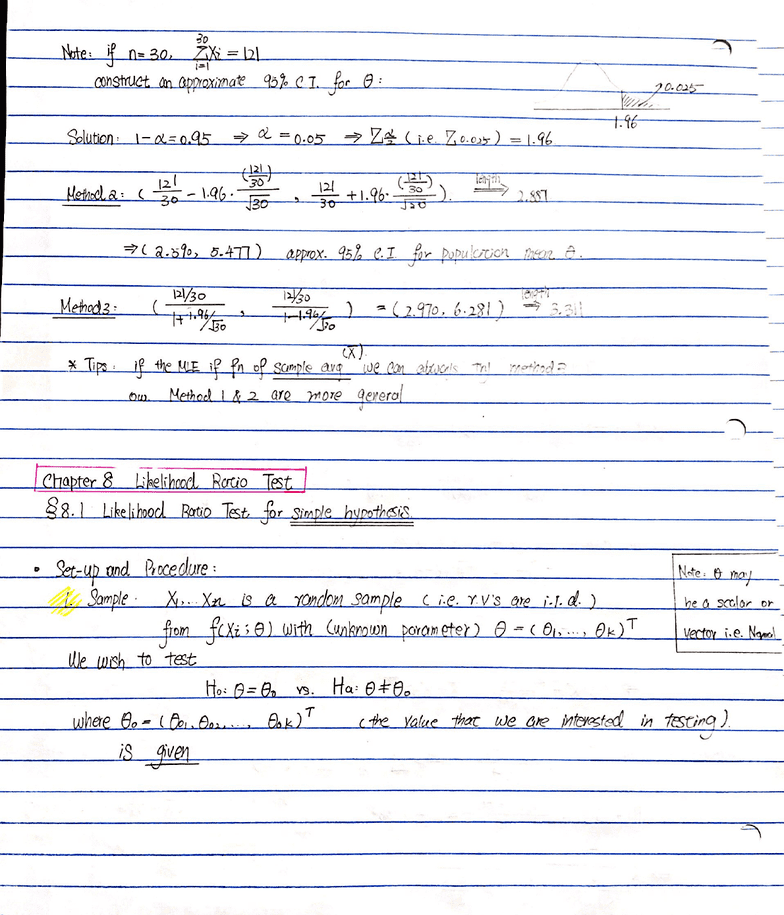 Note: if n=30, $\sum_{i=1}^{30} X_i = 121$
construct an approximate 95% C.I. for θ:
0.025
1.96
Solution: 1-α=0.95 ⇒ α=0.05 ⇒ $Z_{\frac{\alpha}{2}}$ (i.e. $Z_{0.025}$) = 1.96
Method 2: $(\frac{121}{30} - 1.96 \cdot \frac{(\frac{121}{30})}{\sqrt{30}}, \frac{121}{30} + 1.96 \cdot \frac{(\frac{121}{30})}{\sqrt{30}})$. $\overset{length}{\Rightarrow}$ 2.887
⇒ (2.590, 5.477) approx. 95% C.I. for population mean θ.
Method 3: $(\frac{121/30}{1+1.96/\sqrt{30}}, \frac{121/30}{1-1.96/\sqrt{30}})$ = (2.970, 6.281) $\overset{length}{\Rightarrow}$ 3.311
* Tips: if the MLE if fn of sample avg (X̄). we can always try method 3
ow. Method 1 & 2 are more general
Chapter 8 Likelihood Ratio Test
§8.1 Likelihood Ratio Test for simple hypothesis
• Set-up and Procedure:
1. Sample. X₁,... Xn is a random sample (i.e. r.v's are i.i.d.)
from f(Xi;θ) with (unknown parameter) θ = (θ₁,..., θk)ᵀ
We wish to test
H₀: θ=θ₀ vs. Ha: θ≠θ₀
where θ₀ = (θ₀₁, θ₀₂,..., θ₀k)ᵀ (the value that we are interested in testing).
is given
Note: θ may
be a scalar or
vector i.e. Normal